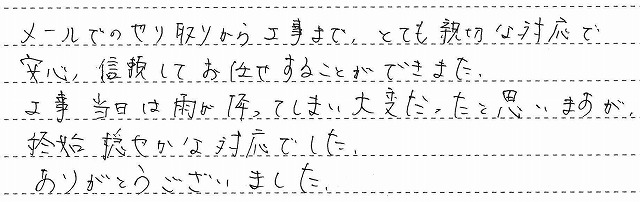 メールでのやり取りから工事まで、とても親切な対応で
安心、信頼してお任せすることができました。
工事当日は雨が降ってしまい大変だったと思いますが、
終始穏やかな対応でした。
ありがとうございました。